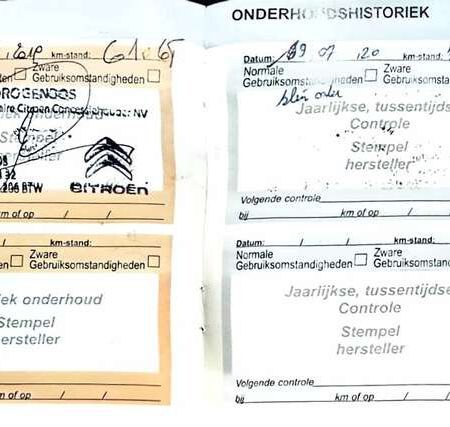 ONDERHOUDSHISTORIEK
km-stand:
Zware
Gebruiksomstandigheden
CITROËN
BTW
km of op / /
/ km-stand:
Zware
Gebruiksomstandigheden
ek onderhoud
Stempel
hersteller
km of op / /
Datum: 07 20 km-stand:
Normale Zware
Gebruiksomstandigheden Gebruiksomsta
Jaarlijkse, tussentijds
Controle
Stempel
hersteller
Volgende controle
bij km of op / /
Datum: / / km-stand:
Normale Zware
Gebruiksomstandigheden Gebruiksomsta
Jaarlijkse, tussentijdse
Controle
Stempel
hersteller
Volgende controle
bij km of op / /